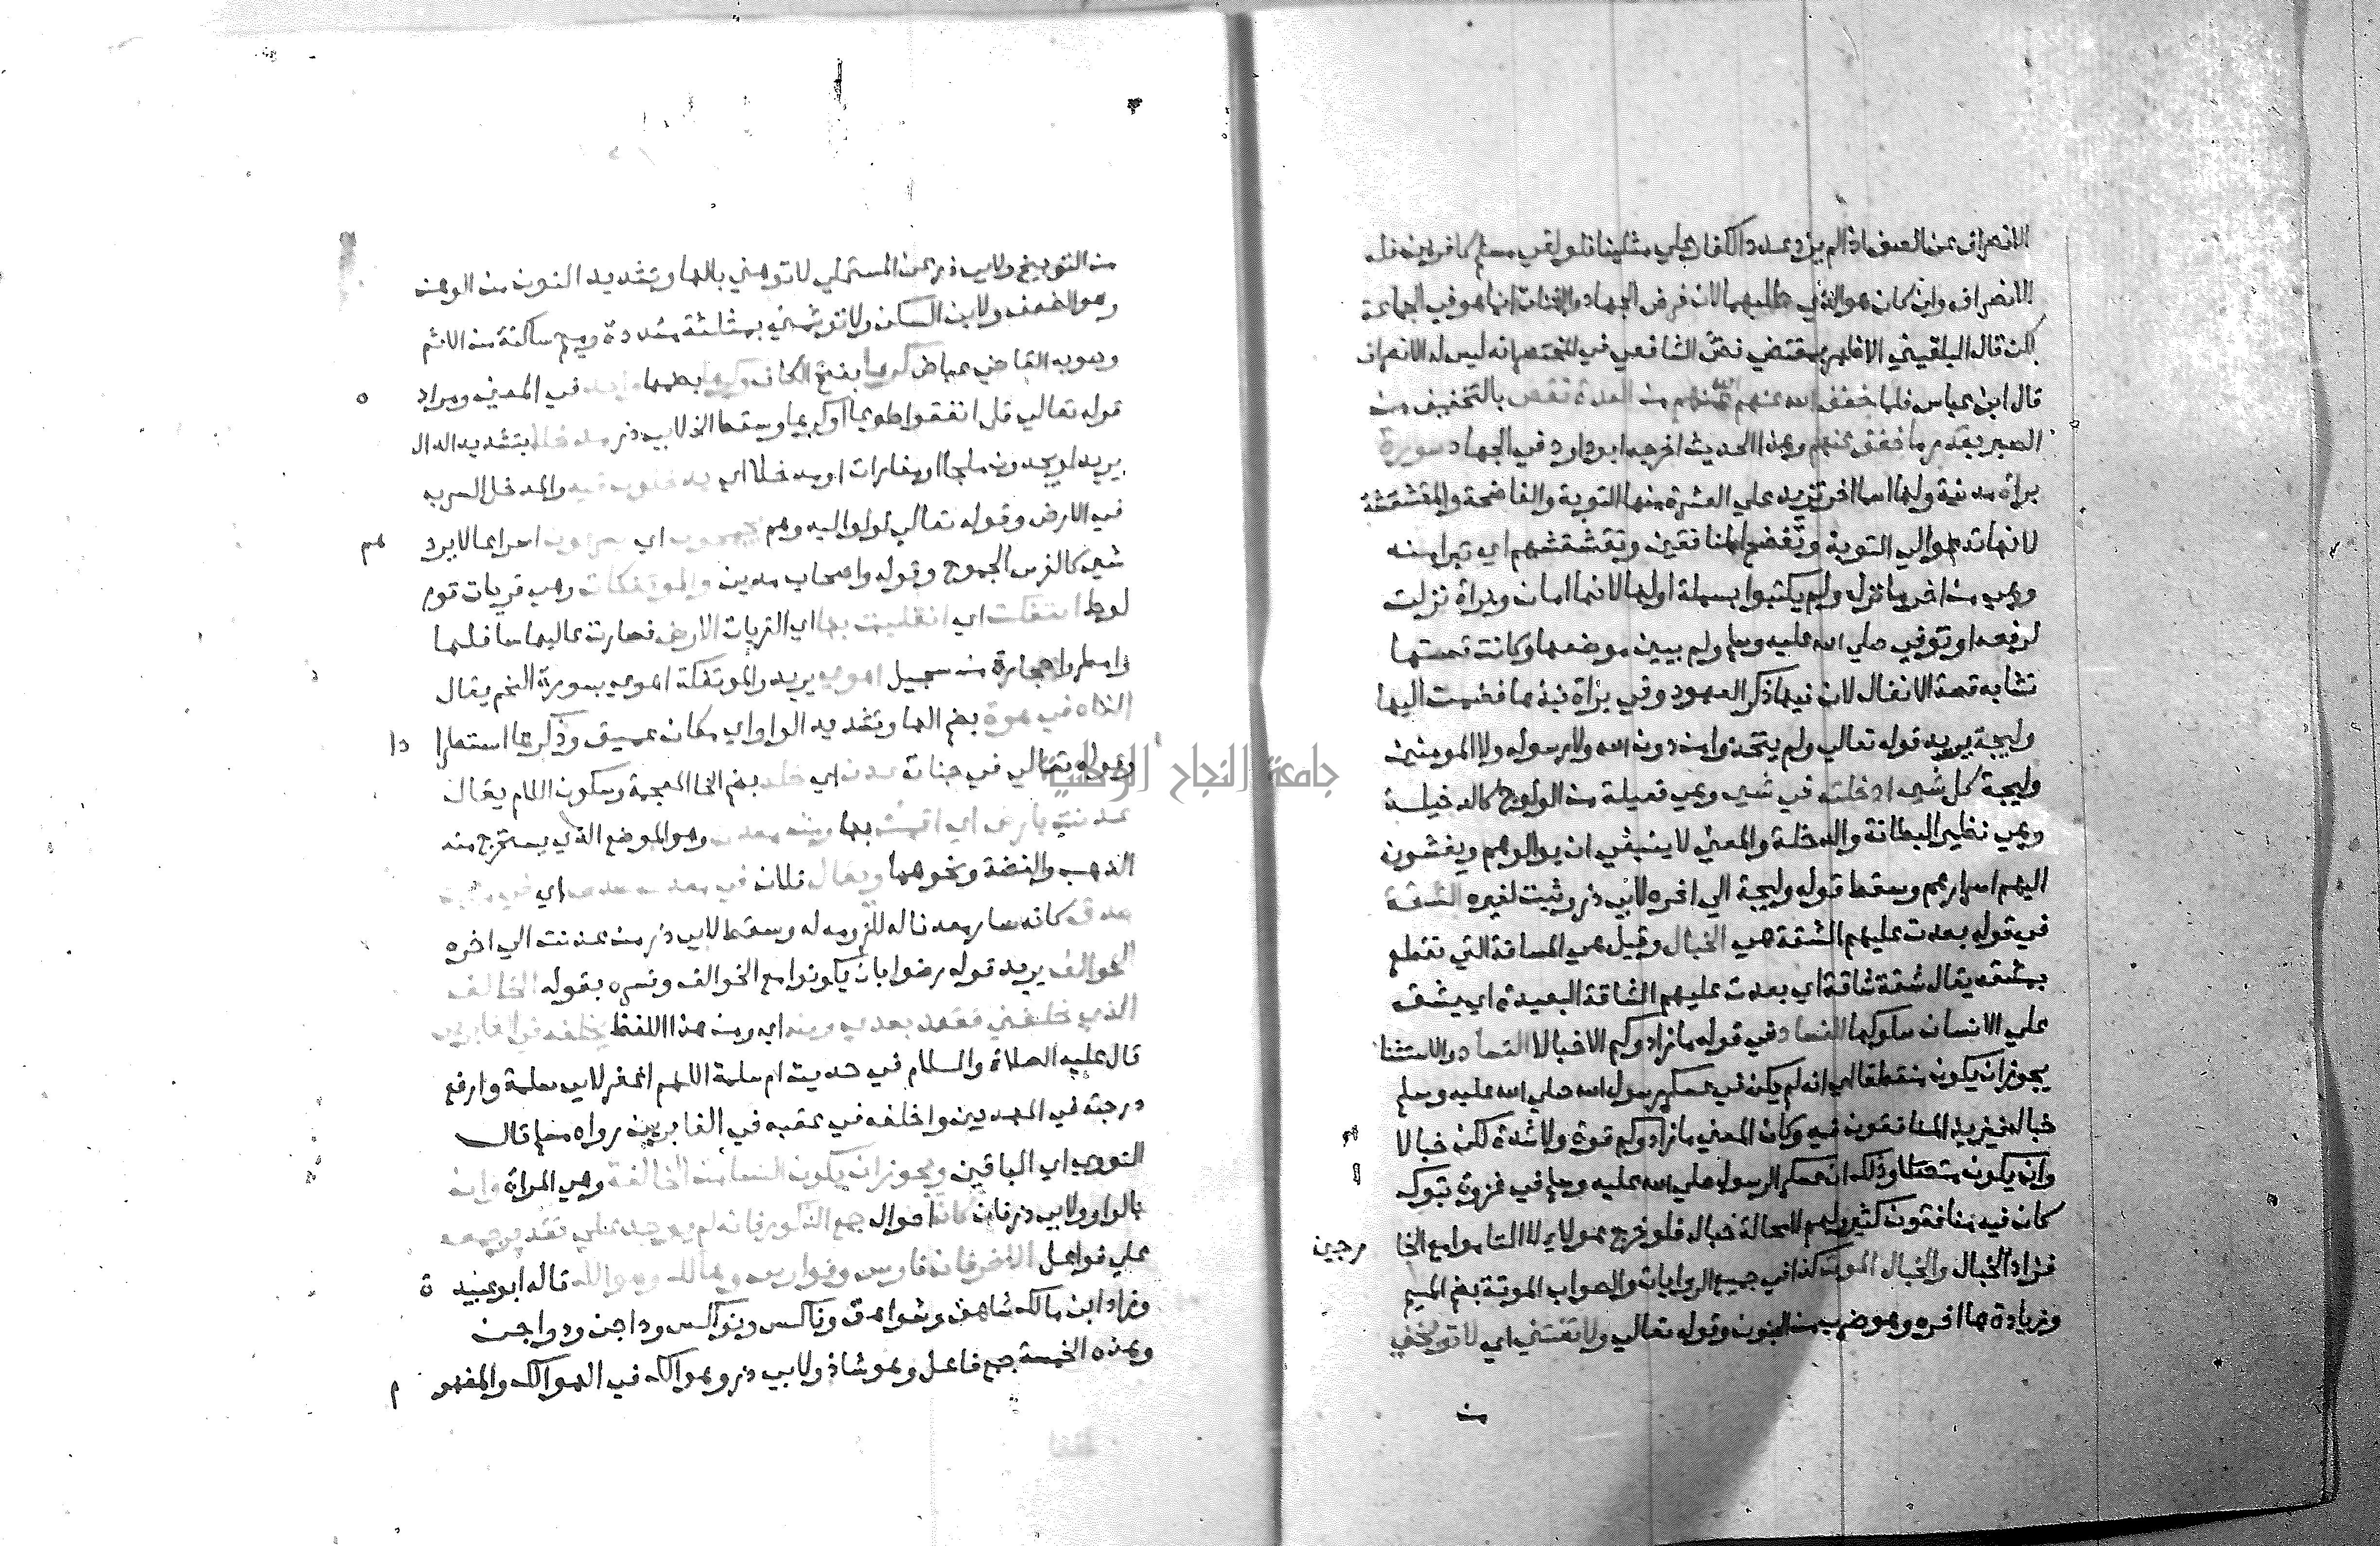 الانصراف عن الصف اذا لم يزد عدد الكفار علي مثلينا فلو لقي مسلم كافرين فله
الانصراف وان كان هو الذي طلبهما لان فرض الجهاد والثبات انما هو في الجماعة
لكن قال البلقيني الاظهر بمقتضي نص الشافعي في المختصر انه ليس له الانصراف
قال ابن عباس فلما خفف الله عنهم من العدة نقص بالتخفيف من
الصبر بقدر ما خفف عنهم وهذا الحديث اخرجه ابو داود في الجهاد سورة
براة مدنية ولها اسما اخر تزيد علي العشرة منها التوبة والفاضحة والمقشقشة
لانها تدعوا الي التوبة وتفضح المنافقين وتقشقشهم اي تبرا منه
وهي من اخر ما نزل ولم يكتبوا بسملة اولها لانها امان وبراة نزلت
لرفعه او توفي صلي الله عليه وسلم ولم يبين موضعها وكانت قصتها
تشابه قصة الانفال لان فيها ذكر العهود وفي براة نبذها فضمت اليها
وليجة يريد قوله تعالي ولم يتخذوا من دون الله ولا رسوله ولا المومنين
وليجة كل شي ادخلته في شي وهي فعيلة من الولوج كالدخيلة
وهي نظير البطانة والدخلة والمعني لا ينبغي ان يوالوهم ويفشون
اليهم اسرارهم وسقط قوله وليجة الي اخره لابي ذر وثبت لغيره الشقة
في قوله بعدت عليهم الشقة هي الخبال وقيل هي المسافة التي تقطع
بمشقة يقال شقة شاقة اي بعدت عليهم الشاقة البعيدة اي يشق
علي الانسان سلوكها الفساد في قوله ما زادوكم الا خبالا الفساد والاستثنا
يجوز ان يكون منقطعا اي انه لم يكن في عسكر رسول الله صلي الله عليه وسلم
خبال فيزيد المنافقون فيه وكان المعني ما زادوكم قوة ولا شدة لكن خبالا
وان يكون متصلا وذلك ان عسكر الرسول صلي الله عليه وسلم في غزوة تبوك
كان فيه منافقون كثير ولهم لا محالة خبال فلو خرج هولاء لالتاموا مع الخا رجين
فزاد الخبال والخبال الموت كذا في جميع الروايات والصواب الموتة بضم الميم
وزيادة ها اخره وهو ضرب من الجنون وقوله تعالي ولا تفتني اي لا توبخني
من
من التوبيخ ولابي ذر عن المستملي لا توهني بالها وتشديد النون من الوهن
وهو الضعف ولابن السكن ولا توثمني بمثلثة مشددة وميم ساكنة من الاثم
وصوبه القاضي عياض كرها بفتح الكاف وكرها بضمها واحد في المعني ومراده
قوله تعالي قل انفقوا طوعا او كرها وسقط الخ لابي ذر مدخلا بتشديد الدال
يريد لو يجدون ملجا او مغارات او مدخلا اي يدخلون فيه والمدخل السرب
في الارض وقوله تعالي لولوا اليه وهم يجمحون اي يسرعون اسراعا لا يردهم
شي كالفرس الجموح وقوله واصحاب مدين والموتفكات وهي قريات قوم
لوط ايتفكت اي انقلبت بها اي القريات الارض فصارت عاليها سافلها
وامطروا حجارة من سجيل اهوي يريد والموتفكة اهوي بسورة النجم يقال
القاه في هوة بضم الها وتشديد الواو اي مكان عميق وذكرها استطرادا
وقوله تعالي في جنات عدن اي خلد بضم الخا المعجمة وسكون اللام يقال
عدنت بارض اي اقمت بها ومنه معدن وهو الموضع الذي يستخرج منه
الذهب والفضة ونحوهما ويقال فلان في معدن صدق اي في منبت
صدق كانه صار معدنا له للزومه له وسقط لابي ذر من عدنت الي اخره
الخوالف يريد قوله رضوا بان يكونوا مع الخوالف وفسره بقوله الخالف
الذي خلفني فقعد بعدي ومنه اي ومن هذا اللفظ يخلفه في الغابرين
قال عليه الصلاة والسلام في حديث ام سلمة اللهم اغفر لابي سلمة وارفع
درجته في المهديين واخلفه في عقبه في الغابرين رواه مسلم قال
النووي اي الباقين ويجوز ان يكون النسا من الخالفة وهي المراة وان
بالواو ولابي ذر فان كان جمع الذكور فانه لم يوجد علي تقدير جمعه
علي فواعل الا حرفان فارس وفوارس وهالك وهوالك قاله ابو عبيدة
وزاد ابن مالك شاهق وشواهق وناكس ونواكس وداجن ودواجن
وهذه الخمسة جمع فاعل وهو شاذ ولابي ذر وهوالك في الهوالك والمفهوم
جامعة النجاح الوطنية